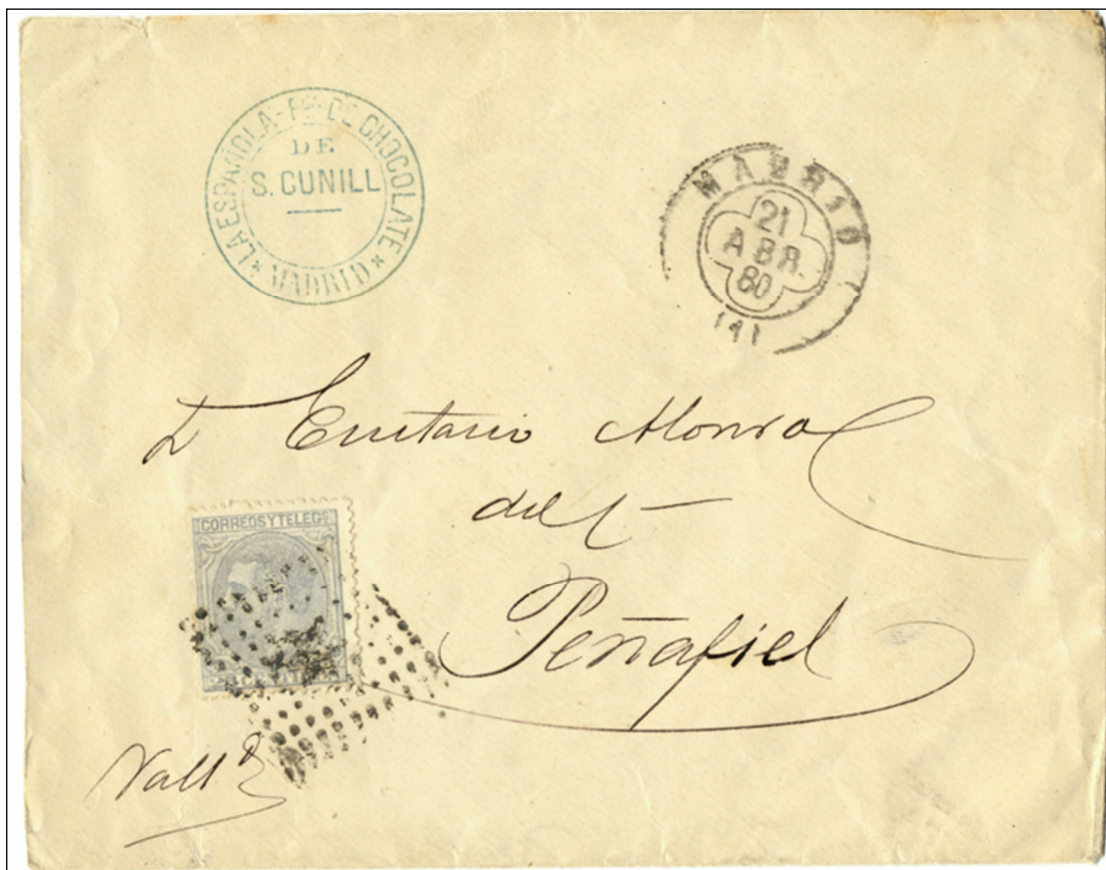 LA ESPAÑOLA - Fca. DE CHOCOLATE
DE
S. CUNILL
* MADRID *
MADRID
21
ABR.
80
(1)
D Alonso
del
Peñafiel
CORREOS Y TELEGS
Valld